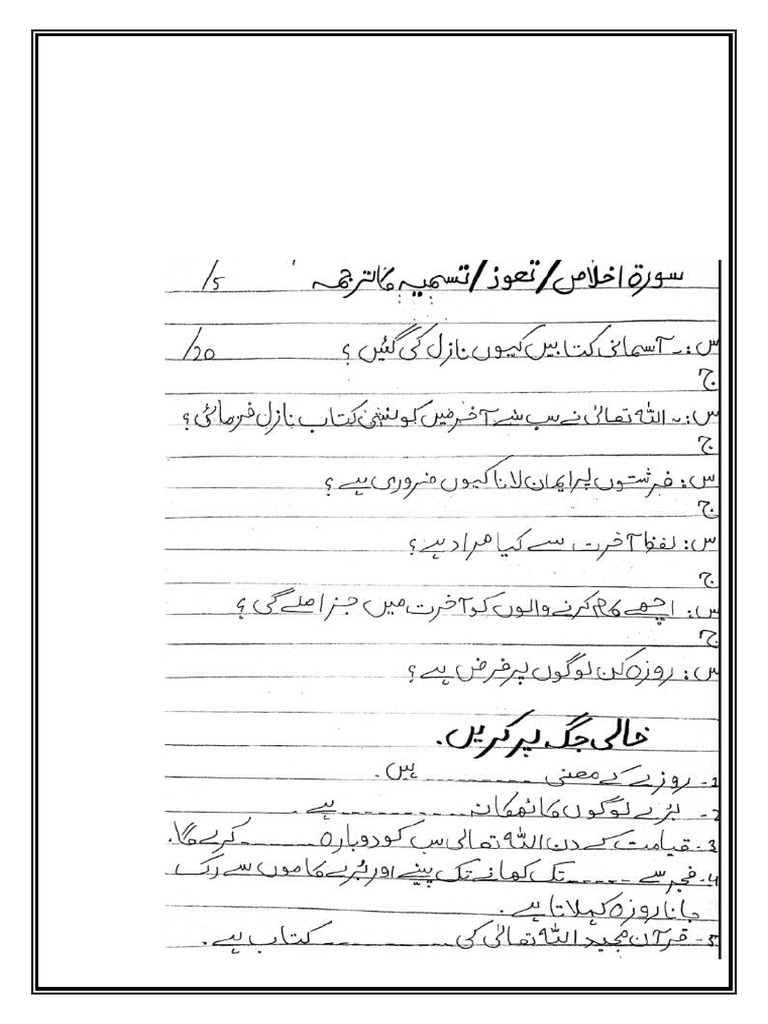 سورة اخلاص/ تعوذ/ تسمیہ کا ترجمہ /5
س:۔ آسمانی کتابیں کیوں نازل کی گئیں؟ /20
ج
س:۔ اللہ تعالیٰ نے سب سے آخر میں کونسی کتاب نازل فرمائی؟
ج
س: فرشتوں پر ایمان لانا کیوں ضروری ہے؟
ج
س: لفظ آخرت سے کیا مراد ہے؟
ج
س: اچھے کام کرنے والوں کو آخرت میں جزا ملے گی؟
ج
س: روزہ کن لوگوں پر فرض ہے؟
خالی جگہ پر کریں.
1- روزے کے معنی --------- ہیں.
2- بُرے لوگوں کا ٹھکانہ ----------- ہے.
3- قیامت کے دن اللہ تعالی سب کو دوبارہ ------- کرے گا.
4- فجر سے ----- تک کھانے تک پینے اور بُرے کاموں سے رک
جانا روزہ کہلاتا ہے.
5- قرآن مجید اللہ تعالیٰ کی ----------- کتاب ہے.